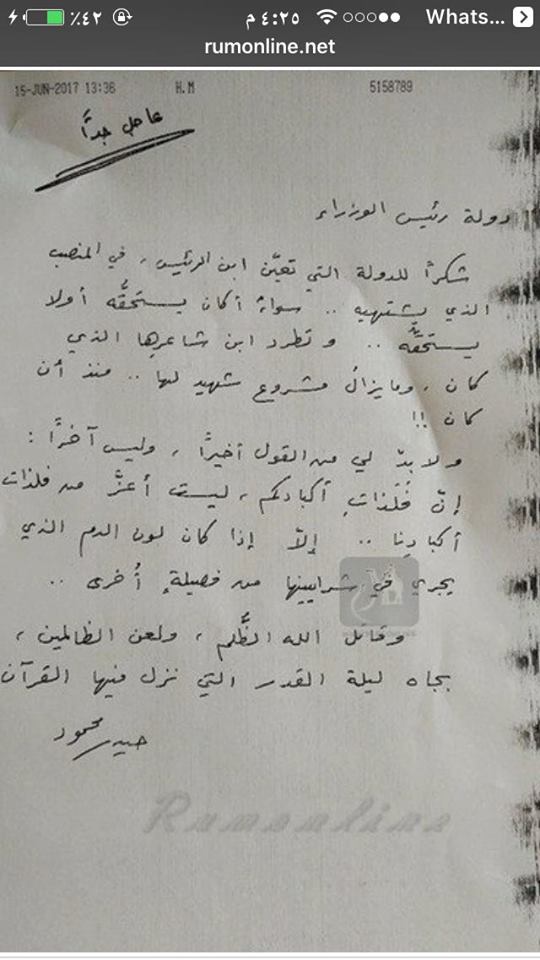 ٪٤٢ ٤:٢٥ م Whats...
rumonline.net
15-JUN-2017 13:36 H.M 5158789 P.
عاجل جداً
دولة رئيس الوزراء
شكراً للدولة التي تعيّن ابن الرئيس، في المنصب
الذي يشتهيه .. سواءٌ أكان يستحقُّه أولا
يستحقُّه .. وتطرد ابن شاعرِها الذي
كان، وما يزالُ مشروع شهيد لها .. منذ أن
كان !!
ولا بدّ لي من القول أخيراً، وليس آخراً:
إنّ فَلَذاتِ أكبادكم، ليست أعزَّ من فلذات
أكبادِنا .. إلاّ إذا كان لون الدم الذي
يجري في شرايينها من فصيلةٍ أُخرى ..
وقاتل الله الظُّلم، ولعن الظالمين،
بجاه ليلة القدر التي نزل فيها القرآن
حيدر محمود
Rumonline